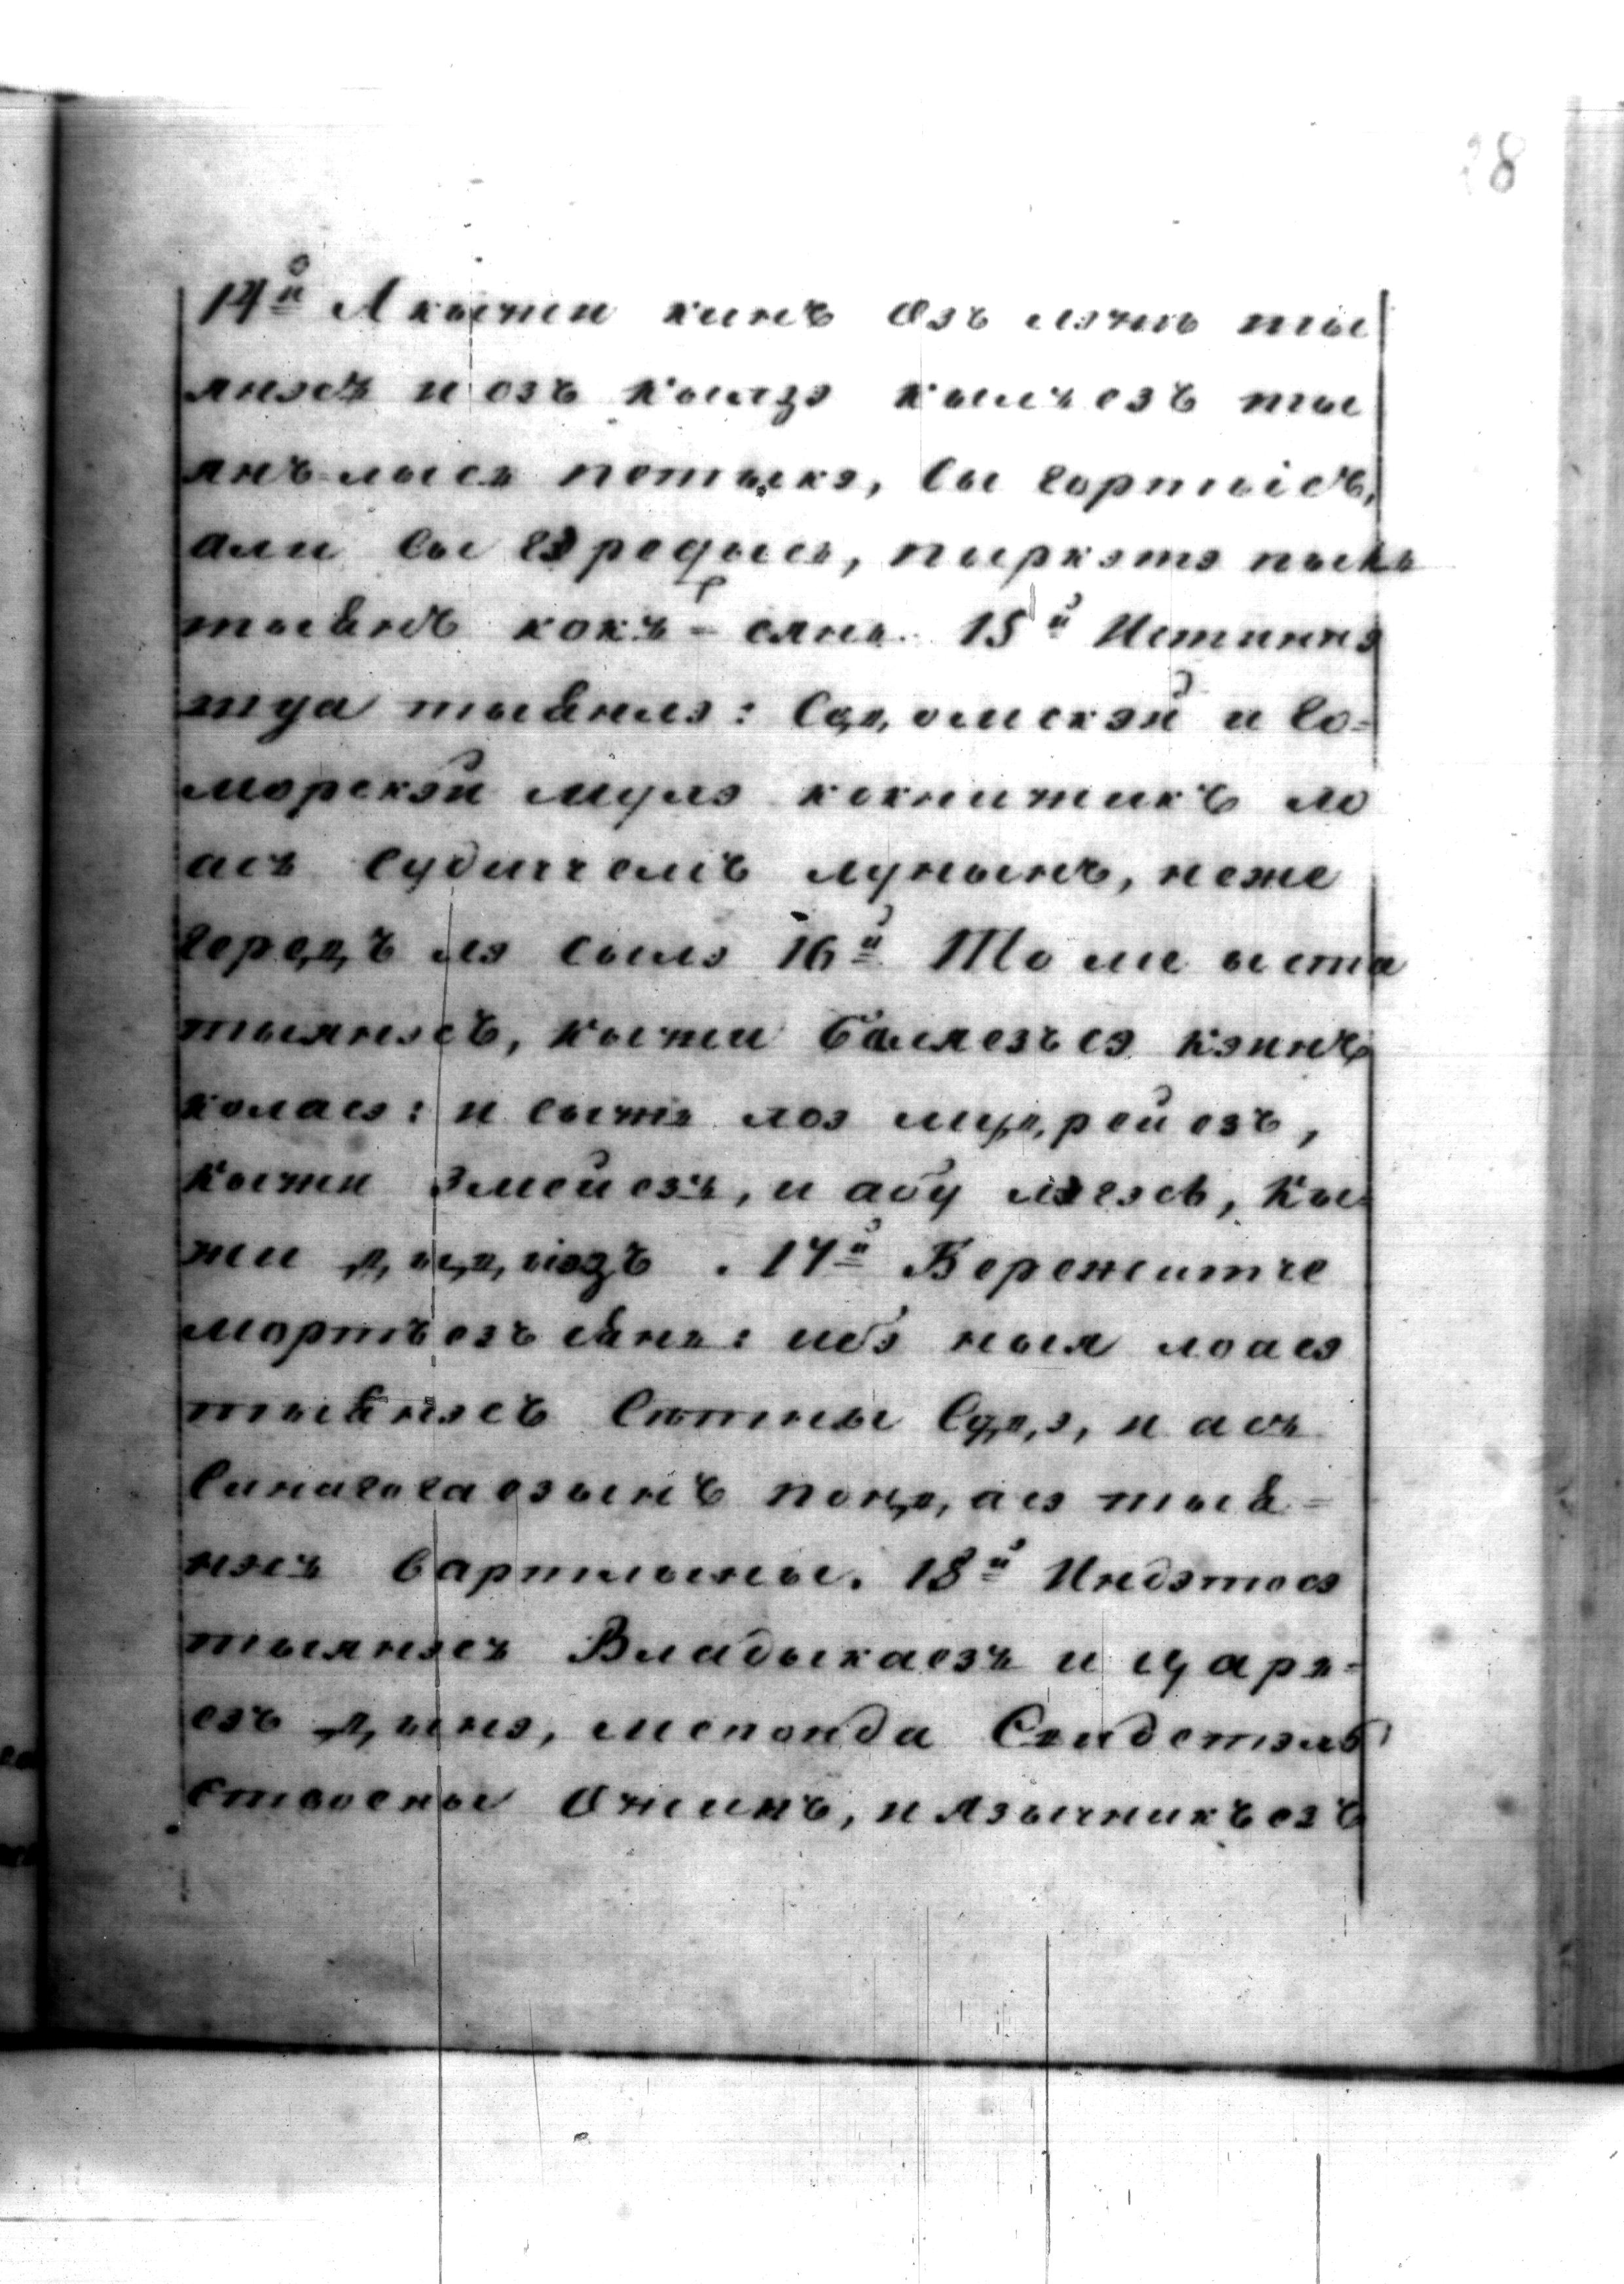 28
14й А кычжи кинъ Озъ лэчжь ты
янэсъ и озъ кылзэ кылъезъ ты
янъ-лысь петыкэ, сы гортысь,
али сы гэредысь, пыркэтэ пысь
тыянъ кокъ-сянь. 15й Истиннэ
шуа тыянлэ: Содомскэй и Го-
морскэй мулэ кокнитикъ ло
асъ судитчемъ лунынъ, неже
городъ лэ сылэ 16й То ме ыста
тыянэсъ, кыжи баляезъсэ кэинъ
коласэ: и сыжь лоэ мудрейезъ,
кыжи Змейезъ, и абу лэгэсь, Кы
жи дидиюзъ. 17й Бережитче
мортъезъ сянь: ибэ ныя лоасэ
тыянэсъ сютны судэ, и асъ
синагогаезынъ пондасэ тыя-
нэсъ вартлыны. 18й Индэтосэ
тыянэсъ Владыкаезъ и царь-
езъ дынэ, мепонда Свидетэль
ствоены Ожинъ, и Язычникъезъ